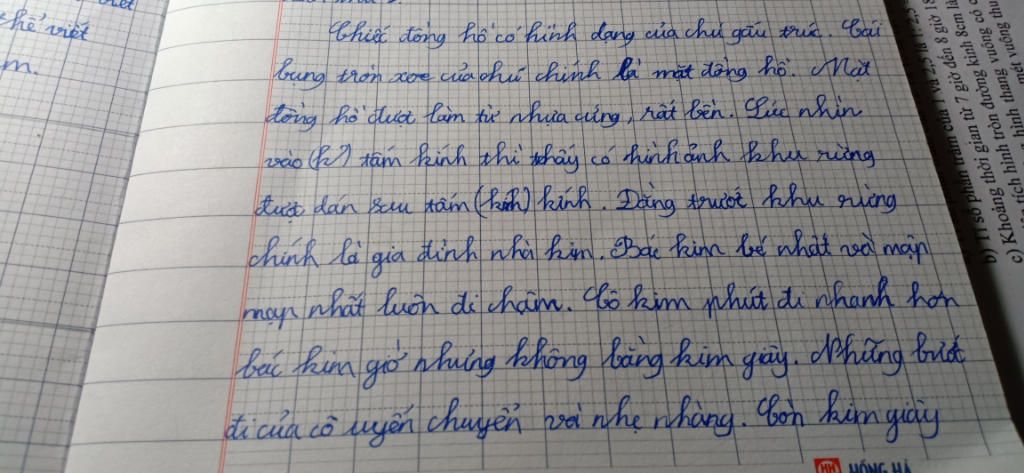 thể viết
m.
Chiếc đồng hồ có hình dạng của chú gấu trúc. Cái
bụng tròn xoe của chú chính là mặt đồng hồ. Mặt
đồng hồ được làm từ nhựa cứng, rất bền. Lúc nhìn
vào (k) tấm kính thì thấy có hình ảnh khu rừng
được dán sau tấm (kính) kính. Đằng trước khu rừng
chính là gia đình nhà kim. Bác kim bé nhất và mập
mạp nhất luôn đi chậm. Cô kim phút đi nhanh hơn
bác kim giờ nhưng không bằng kim giây. Những bước
đi của cô uyển chuyển và nhẹ nhàng. Còn kim giây
HH HỒNG HÀ
b) Tỉ số phần trăm của 1 và 2,5 là 1: 2,5
c) Khoảng thời gian từ 7 giờ đến 8 giờ
tích hình tròn đường kính 8cm là
hình thang vuông có
mét vuông